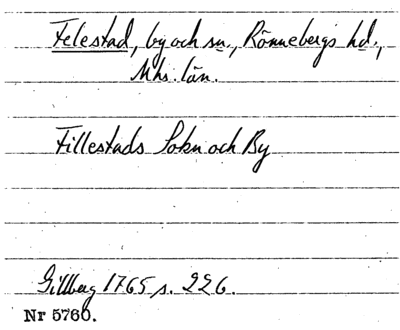 Felestad, by och sn., Rönnebergs hd.,
Mhs. län.
Fillestads Sokn och By
Gillberg 1765 s. 226.
Nr 5760.